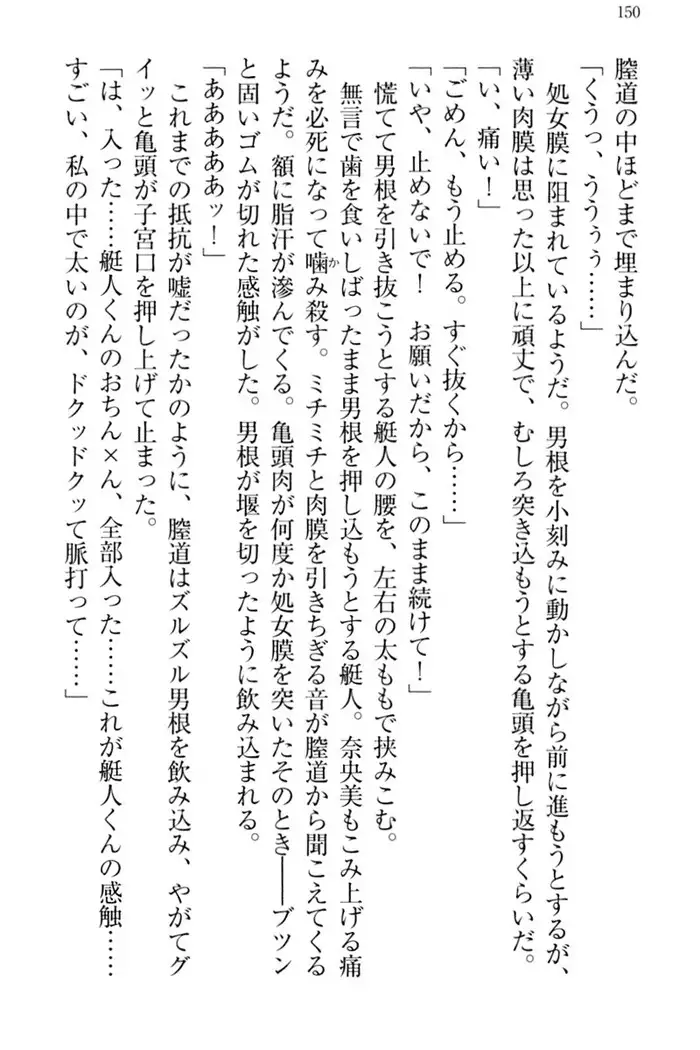 150
膣道の中ほどまで埋まり込んだ。
「くうっ、ううぅぅ……」
処女膜に阻まれているようだ。男根を小刻みに動かしながら前に進もうとするが、
薄い肉膜は思った以上に頑丈で、むしろ突き込もうとする亀頭を押し返すくらいだ。
「い、痛い！」
「ごめん、もう止める。すぐ抜くから……」
「いや、止めないで！　お願いだから、このまま続けて！」
慌てて男根を引き抜こうとする艇人の腰を、左右の太ももで挟みこむ。
無言で歯を食いしばったまま男根を押し込もうとする艇人。奈央美もこみ上げる痛
みを必死になって噛み殺す。ミチミチと肉膜を引きちぎる音が膣道から聞こえてくる
か
ようだ。額に脂汗が滲んでくる。亀頭肉が何度か処女膜を突いたそのとき――ブツン
と固いゴムが切れた感触がした。男根が堰を切ったように飲み込まれる。
「あああああッ！」
これまでの抵抗が嘘だったかのように、膣道はズルズル男根を飲み込み、やがてグ
イッと亀頭が子宮口を押し上げて止まった。
「は、入った……艇人くんのおちん×ん、全部入った……これが艇人くんの感触……
すごい、私の中で太いのが、ドクッドクッて脈打って……」